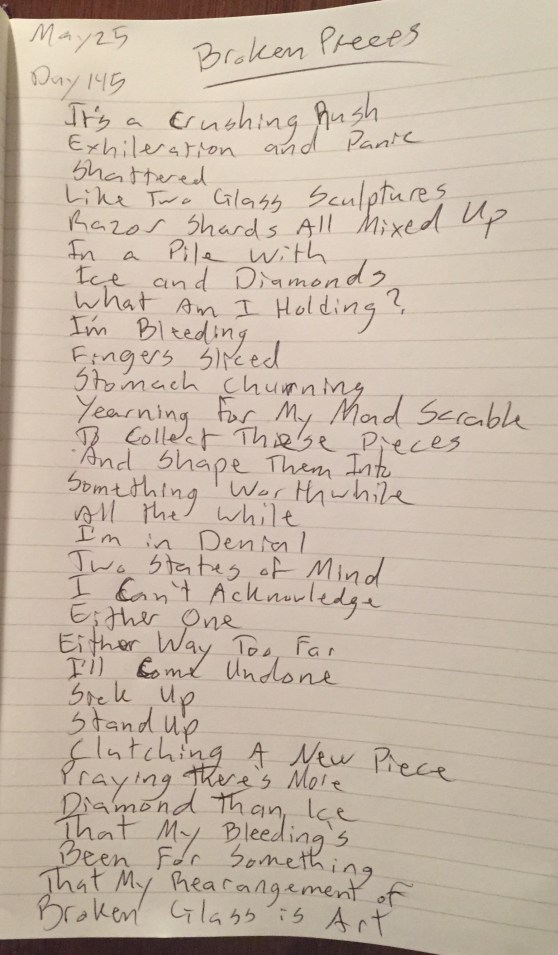 May 25
Broken Pieces
Day 145
It's a Crushing Rush
Exhileration and Panic
Shattered
Like Two Glass Sculptures
Razor Shards All Mixed Up
In a Pile With
Ice and Diamonds
What Am I Holding?
I'm Bleeding
Fingers Sliced
Stomach Churning
Yearning For My Mad Scrable
To Collect These Pieces
And Shape Them Into
Something Worthwhile
All the while
I'm in Denial
Two States of Mind
I Can't Acknowledge
Either One
Either Way Too Far
I'll Come Undone
Suck Up
Stand Up
Clutching A New Piece
Praying there's More
Diamond Than Ice
That My Bleeding's
Been For Something
That My Rearangement of
Broken Glass is Art